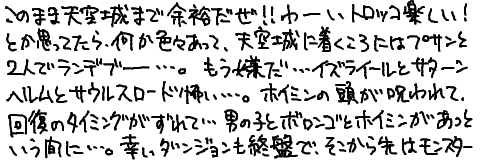 このまま天空城まで余裕だぜ!!わーいトロッコ楽しい!
とか思ってたら、何か色々あって、天空城に着くころにはプサンと
2人でランデブー…。もう嫌だ…イズライールとサターン
ヘルムとサウルスロード怖い…。ホイミンの頭が呪われて、
回復のタイミングがずれて…男の子とボロンゴとホイミンがあっと
いう間に…。幸いダンジョンも終盤で、そこから先はモンスター